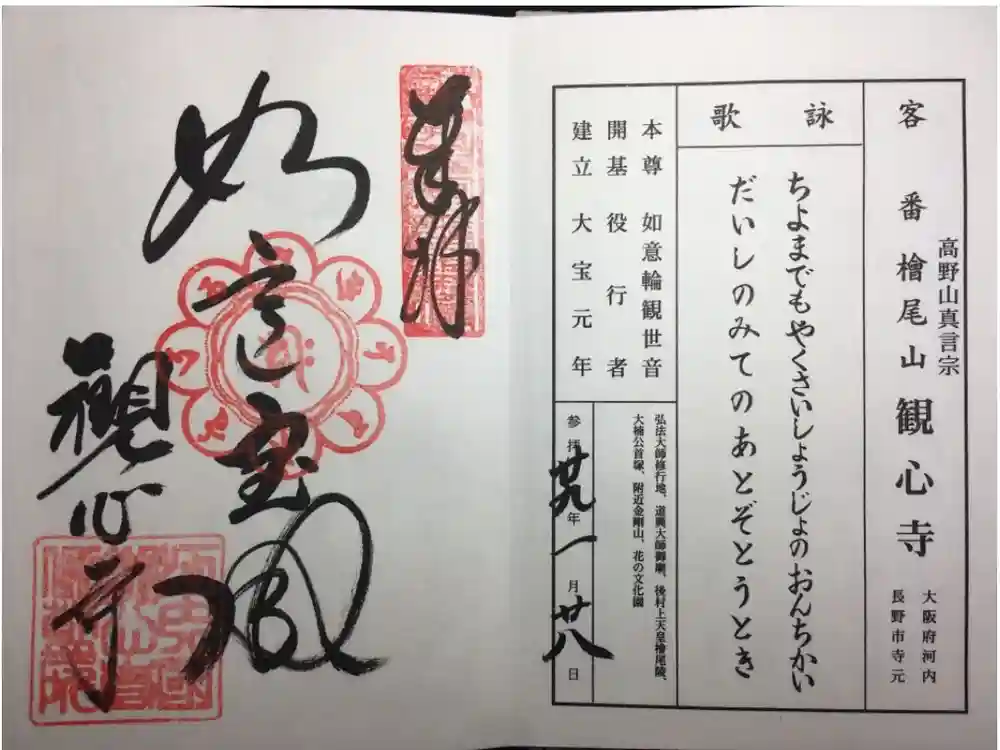 高野山真言宗
客番 檜尾山 観心寺
大阪府河内
長野市寺元
詠歌
ちよまでもやくさいしょうじょのおんちかい
だいしのみてのあとぞとうとき
本尊 如意輪観世音
開基 役行者
建立 大宝元年
弘法大師修行地、道興大師御廟、後村上天皇檜尾陵、
大楠公首塚、附近金剛山、花の文化園
参拝廿九年一月廿八日
奉拝
如意宝殿
観心寺